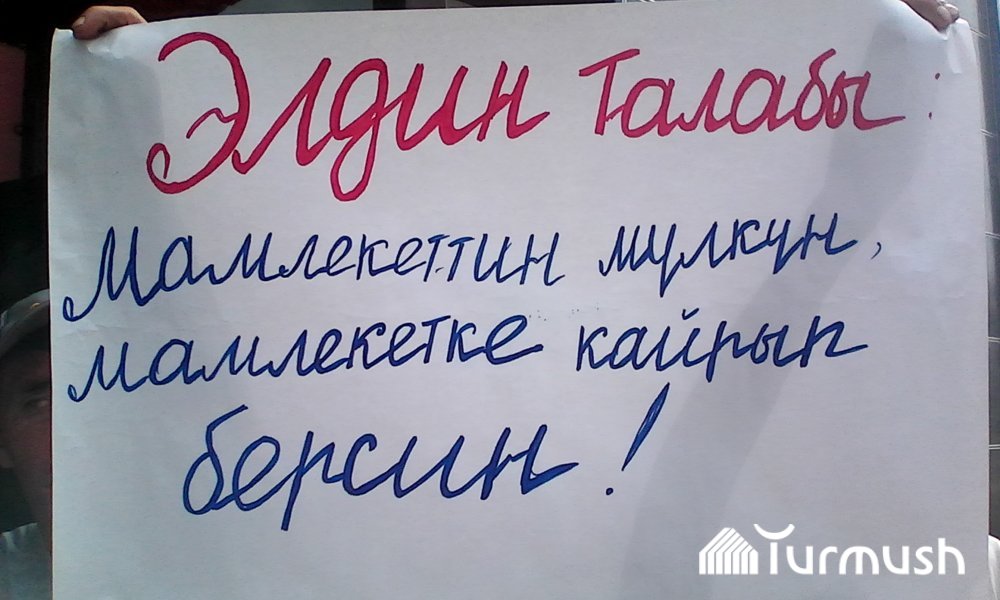 Элдин Талабы:
Мамлекеттин мулкун,
мамлекетке кайрып
берсин!
Turmush